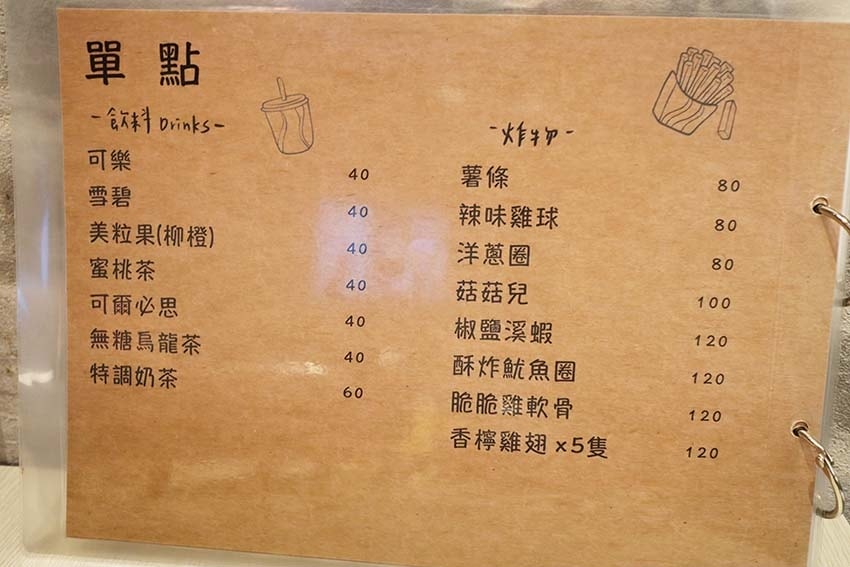 單 點
-飲料 Drinks-
可樂 40
雪碧 40
美粒果(柳橙) 40
蜜桃茶 40
可爾必思 40
無糖烏龍茶 40
特調奶茶 60
-炸物-
薯條 80
辣味雞球 80
洋蔥圈 80
菇菇兒 100
椒鹽溪蝦 120
酥炸魷魚圈 120
脆脆雞軟骨 120
香檸雞翅 x5隻 120